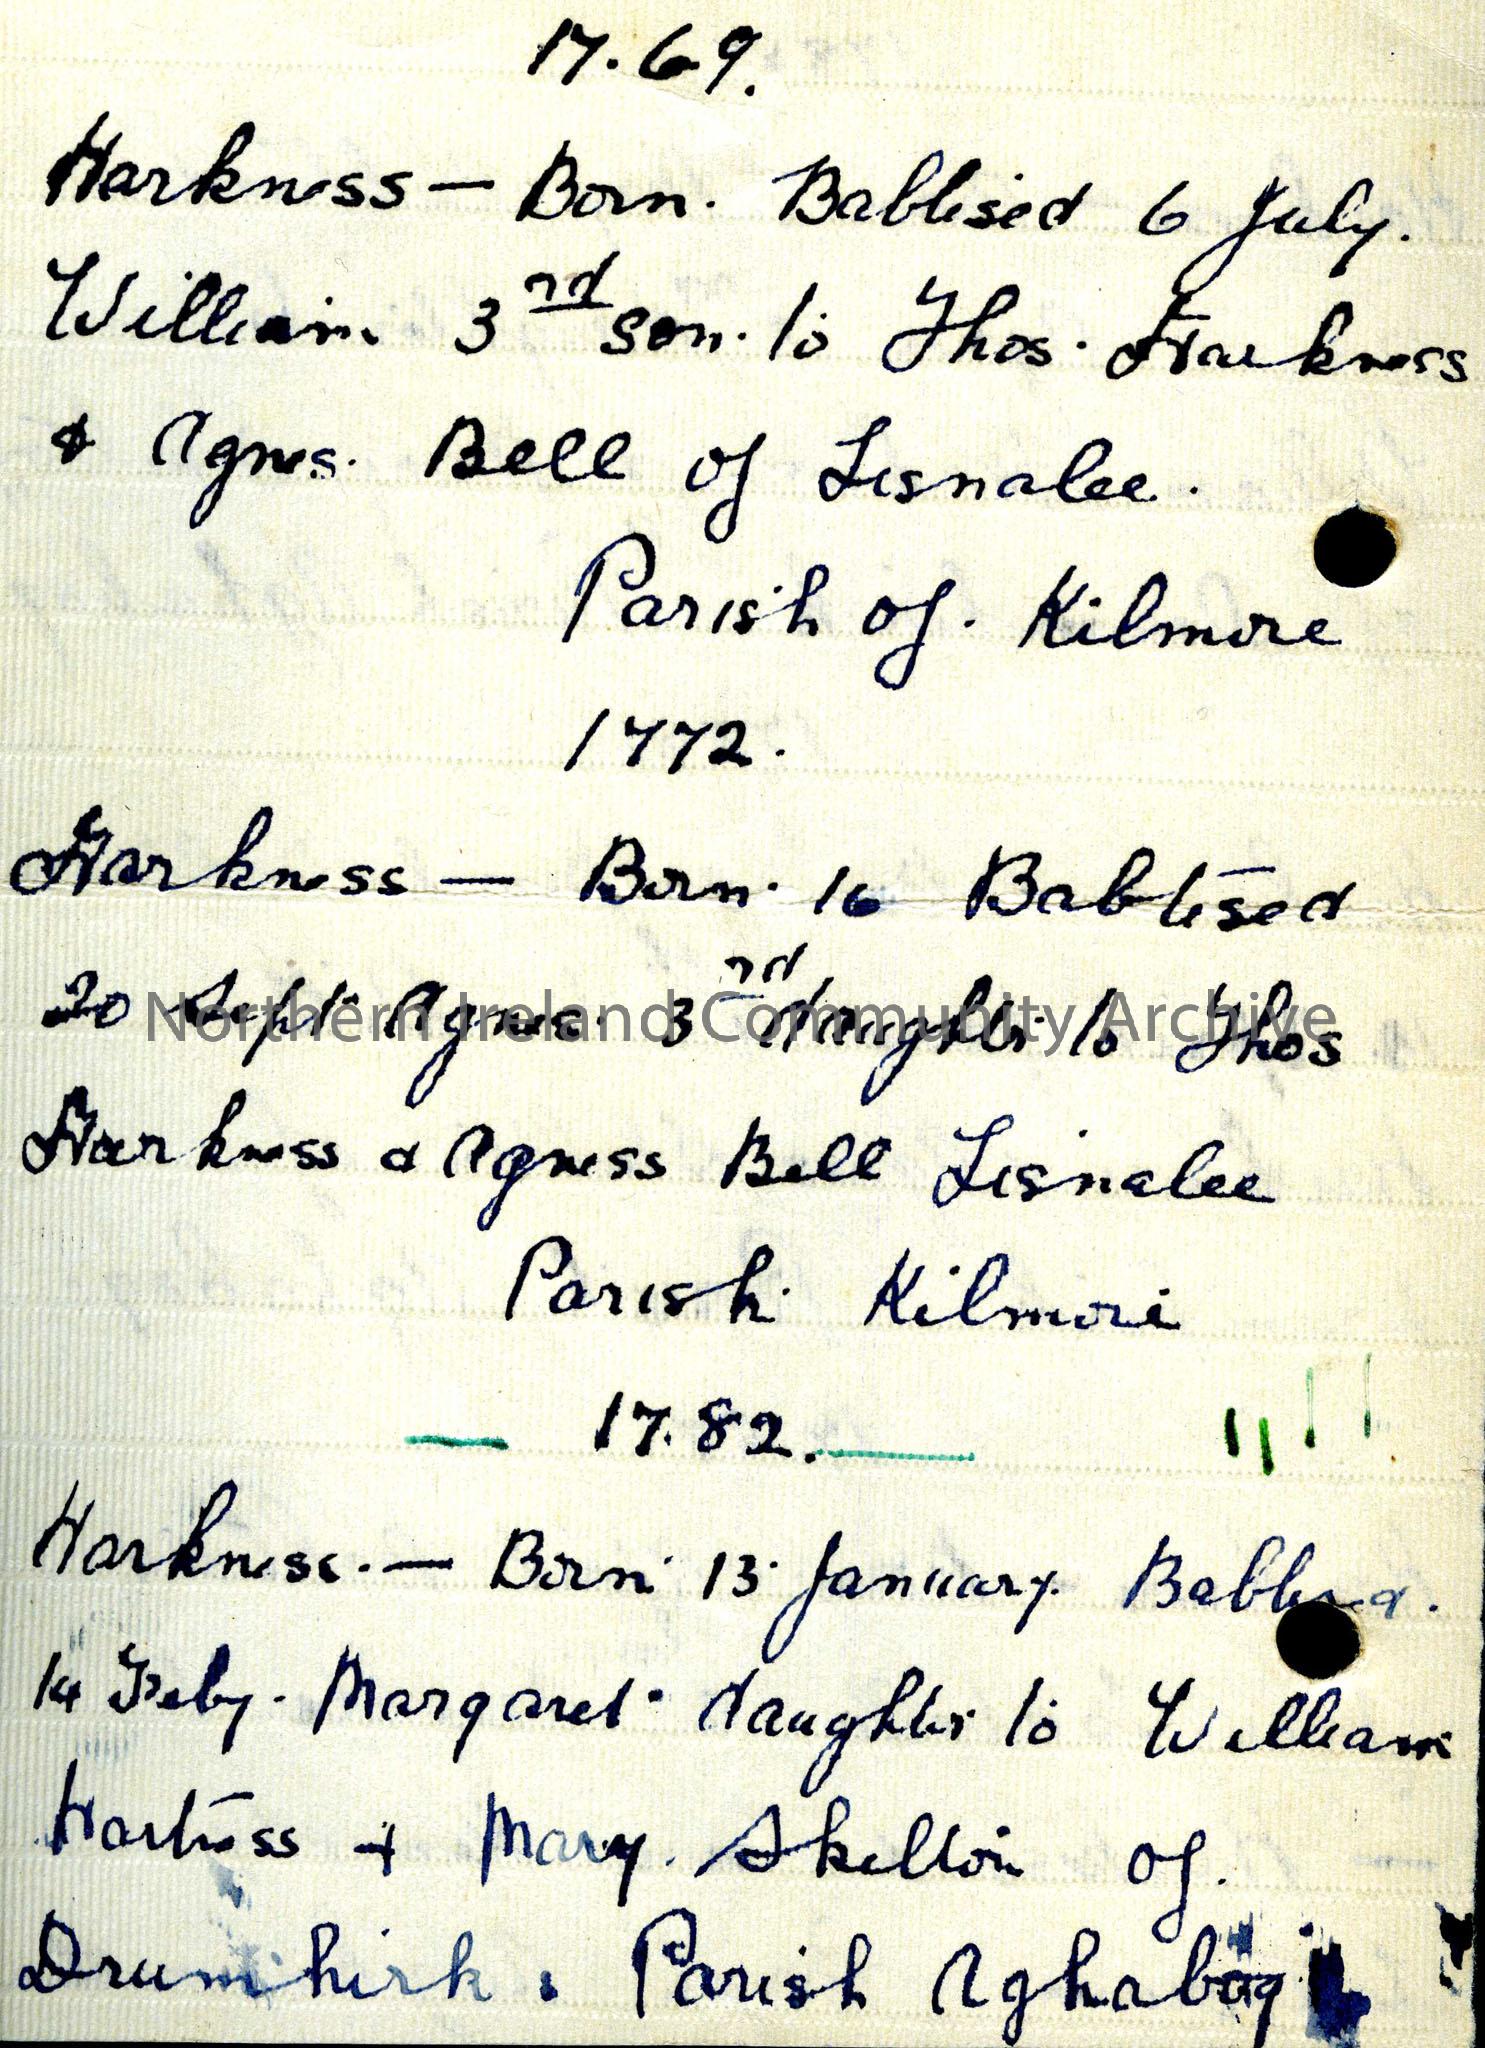 17.69.
Harkness — Born. Babtised 6 July.
William 3rd son. to Thos. Harkness
& Agnes. Bell of Lisnalee.
Parish of. Kilmore
1772.
Harkness — Born. 16 Babtised
20 Sept. Agnes. 3rd daughter to Thos
Northern Ireland Community Archive
Harkness & Agness Bell Lisnalee
Parish Kilmore
17.82.
Harkness. — Born 13 January Babtised.
14 Feby. Margaret daughter to William
Hartness + Mary. Skelton of.
Drumhirk. Parish Aghabog